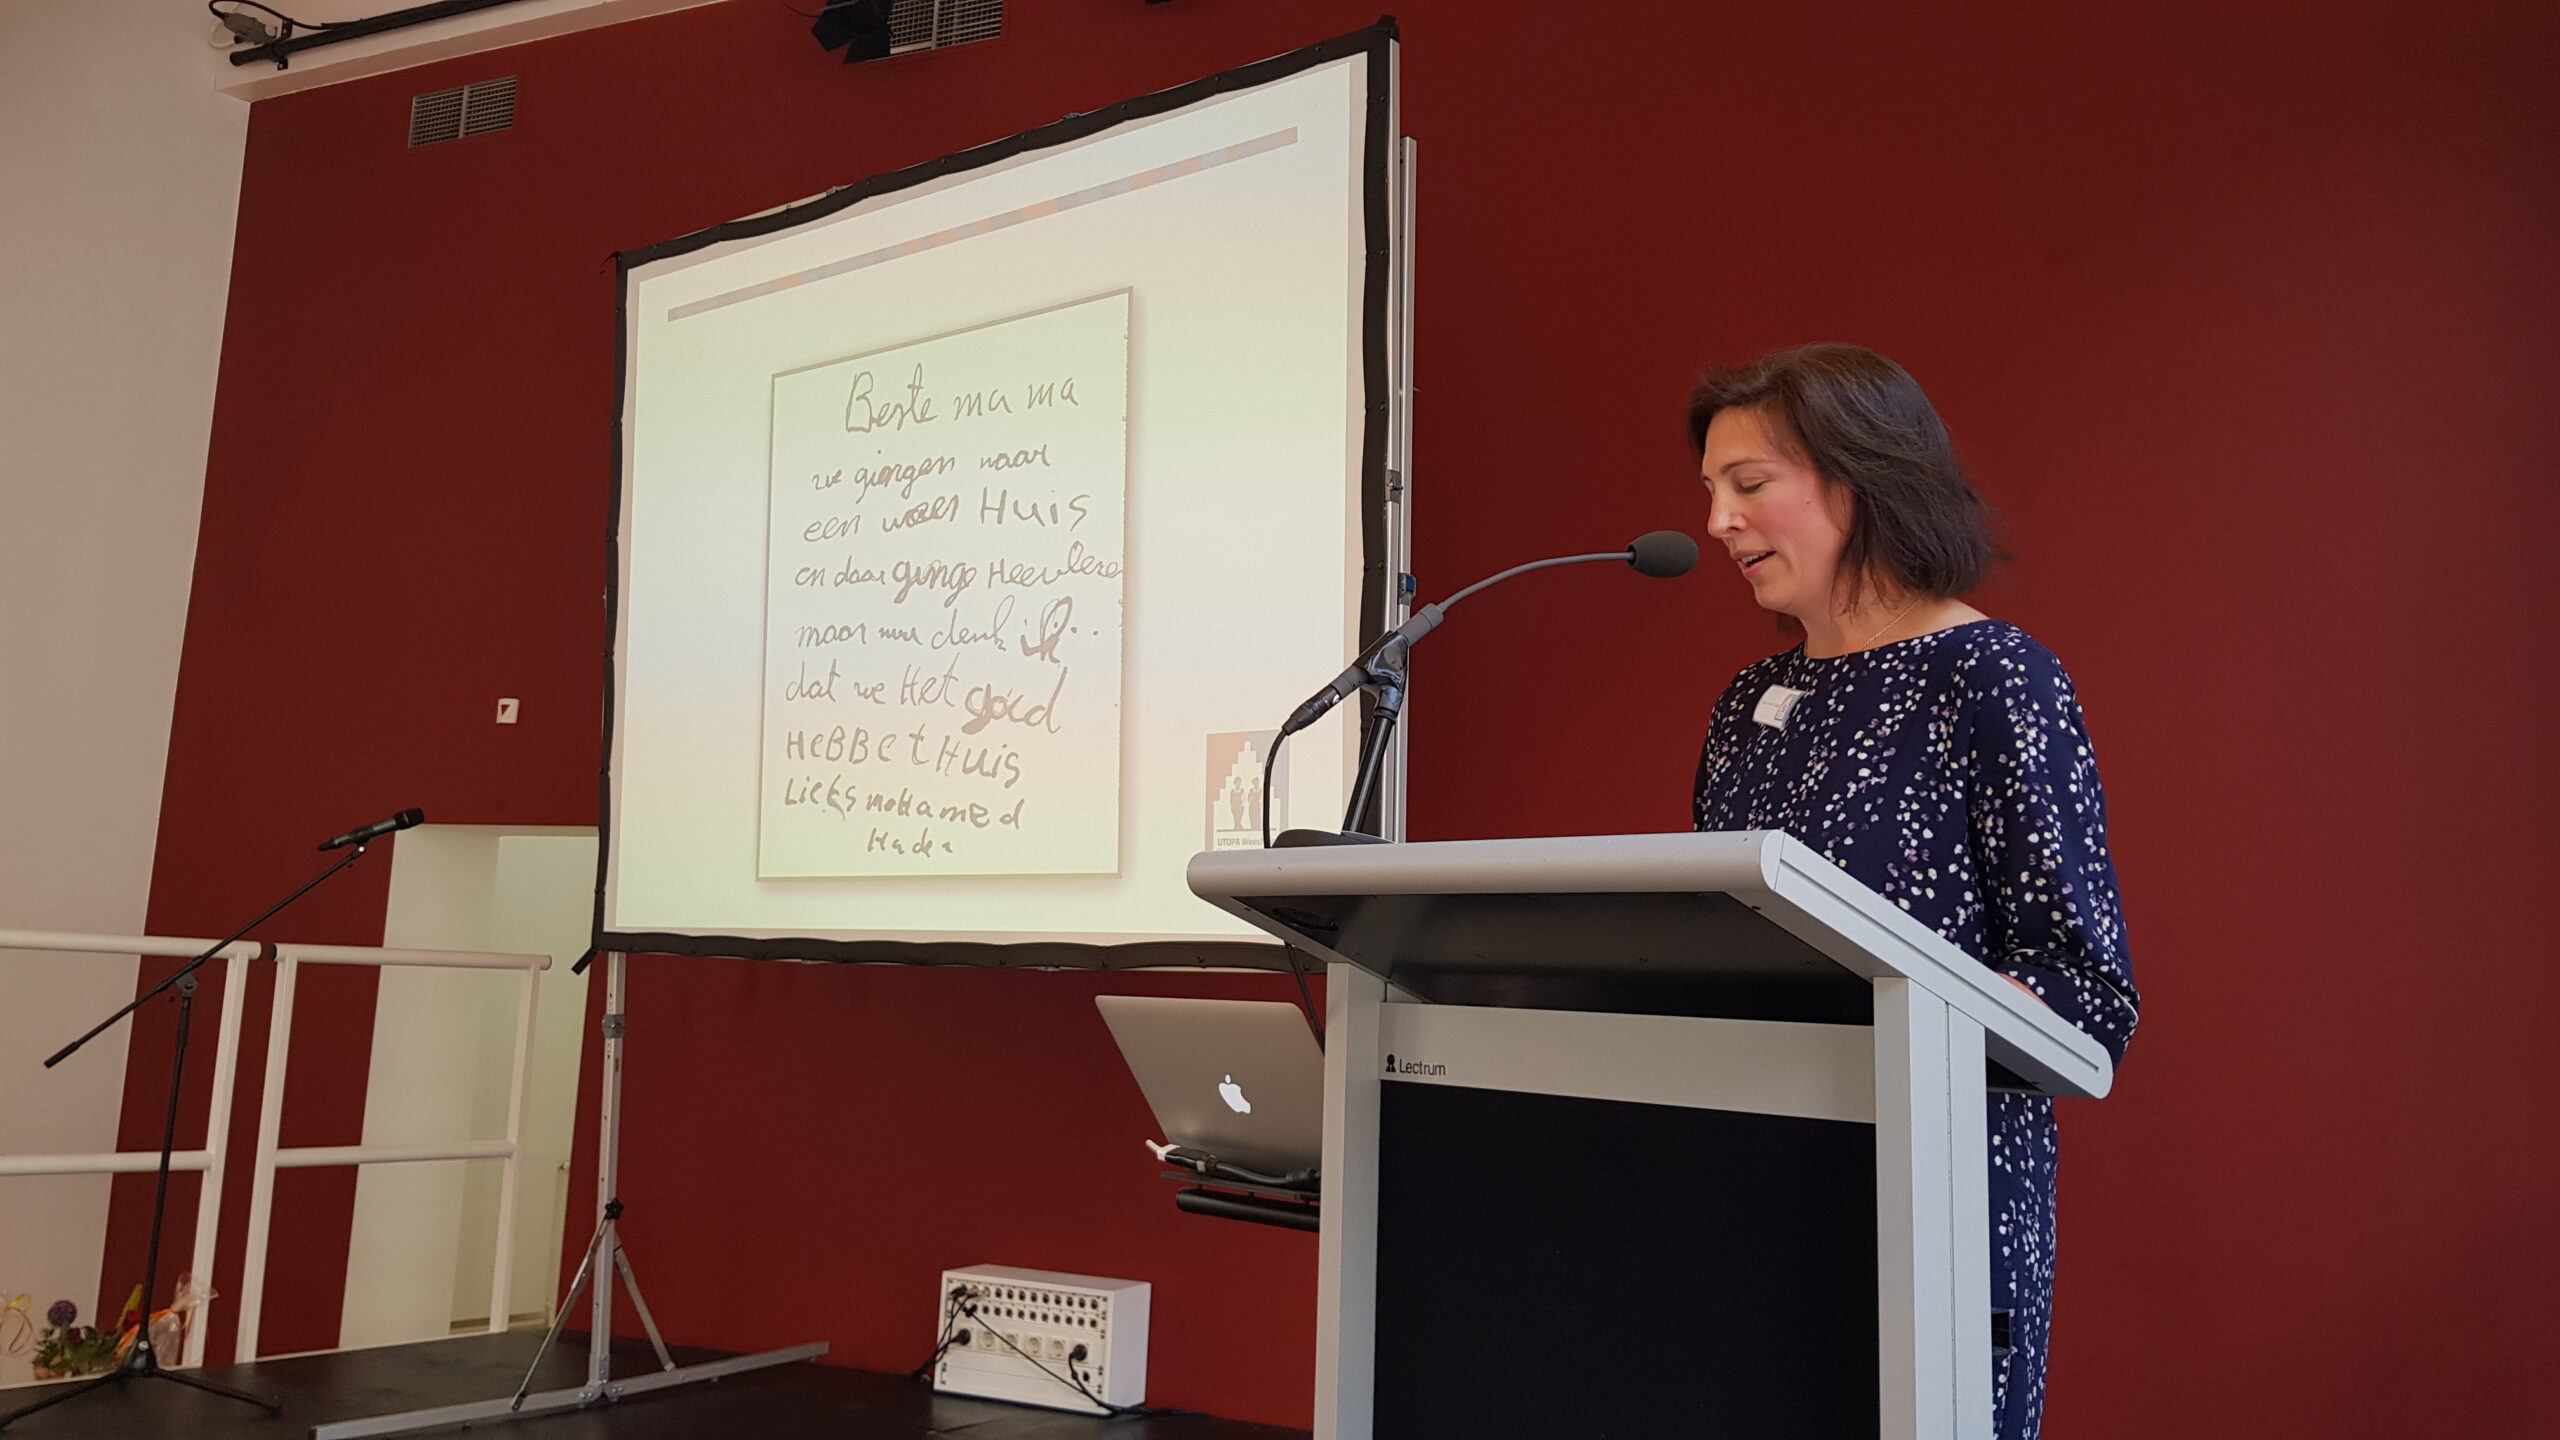 Beste mama
we giongen naar
een wees Huis
en daar gинge Heev
maar nu denk ik..
dat we Het goed
HeBBe t Huis
Liefs moHamed
UTOPA Weesh
Lectrum